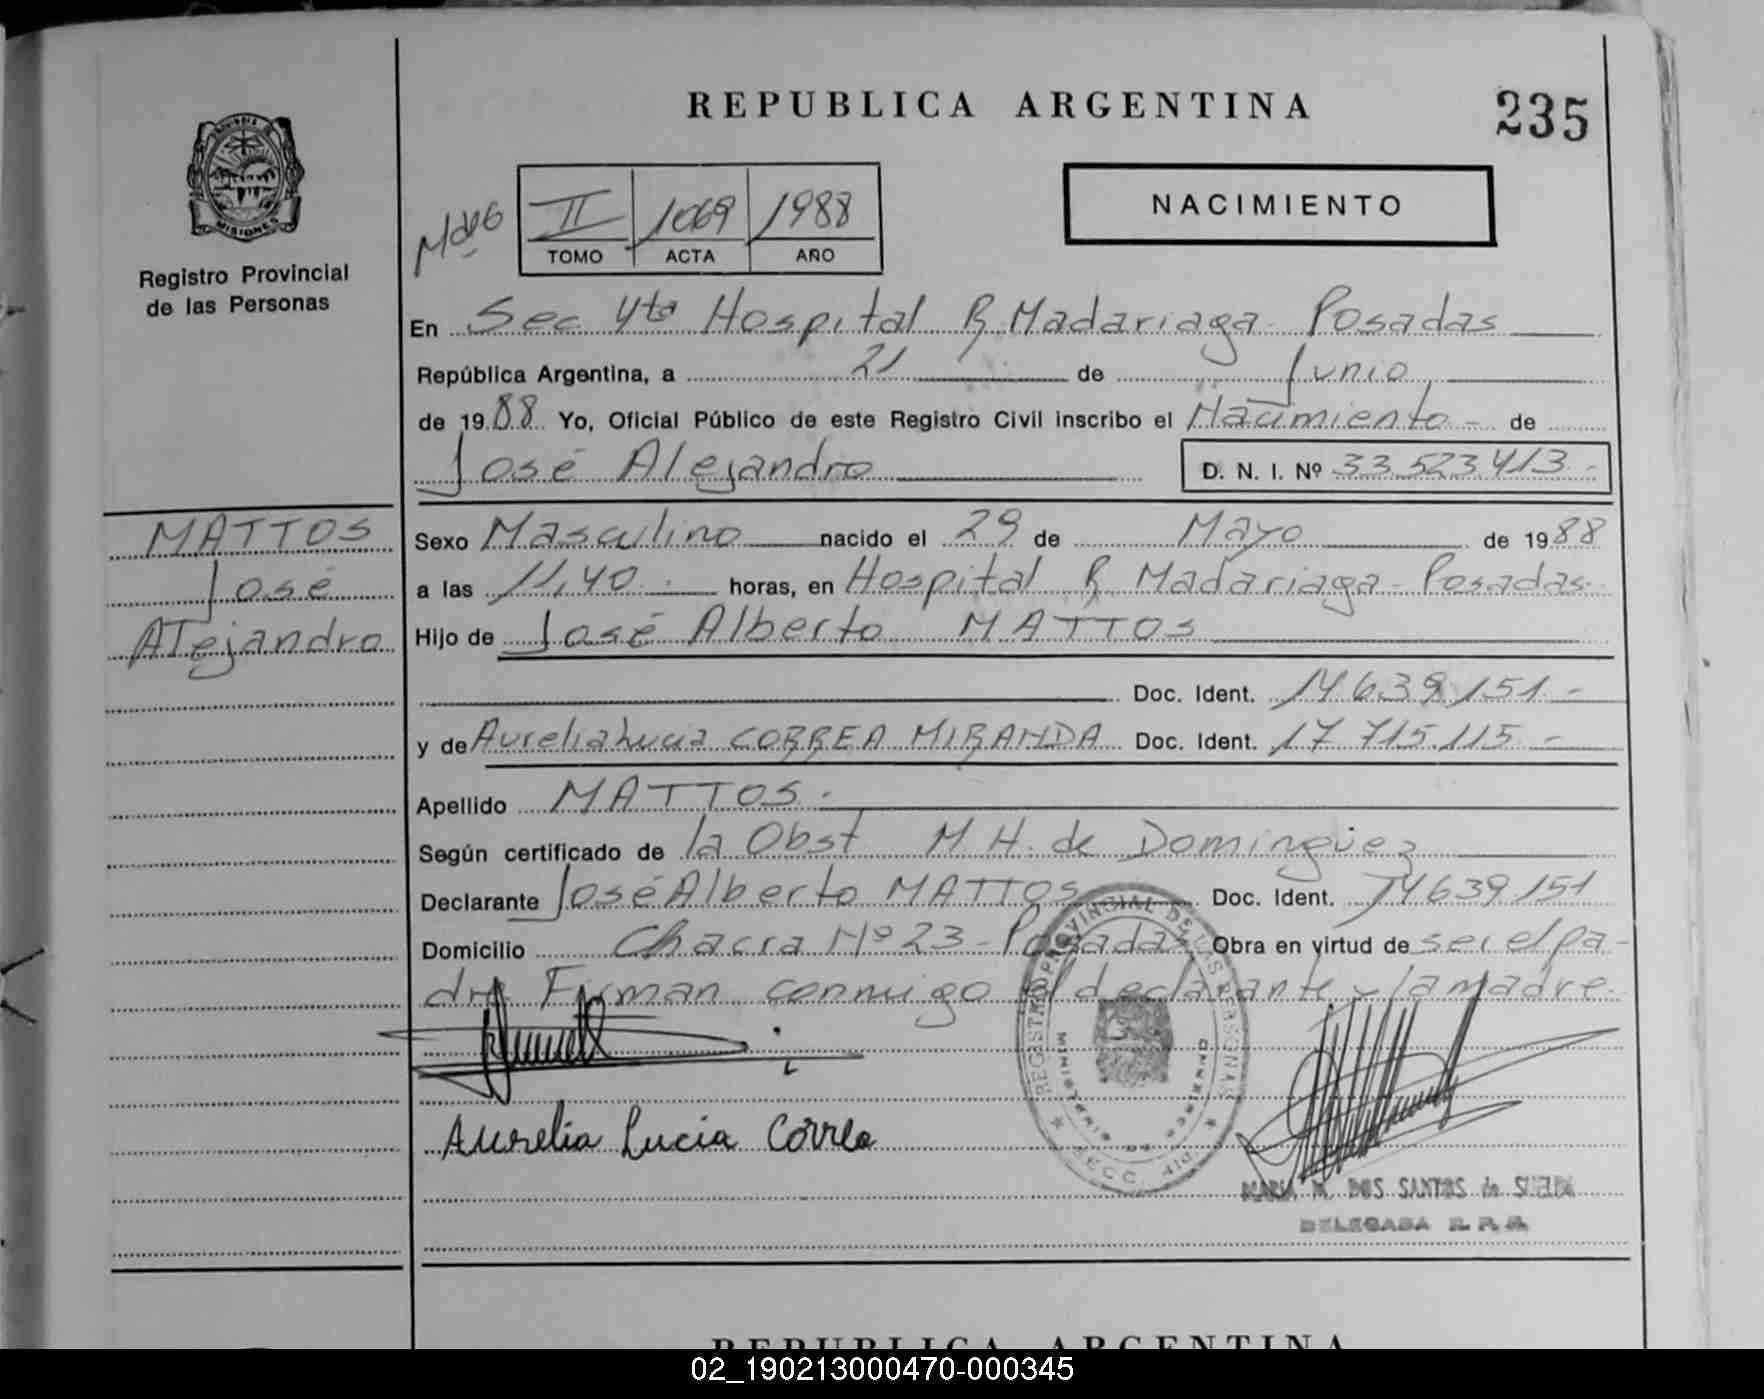 REPUBLICA ARGENTINA
235
PROVINCIA DE
MISIONES
Registro Provincial
de las Personas
NACIMIENTO
II 1069 1988
TOMO ACTA AÑO
En Sec 4ta Hospital R. Madariaga - Posadas
República Argentina, a 21 de Junio
de 1988 Yo, Oficial Público de este Registro Civil inscribo el Nacimiento - de
José Alejandro D. N. I. Nº 33.523.413.-
MATTOS
José
Alejandro
Sexo Masculino nacido el 29 de Mayo de 1988
a las 11,40 . horas, en Hospital R. Madariaga - Posadas
Hijo de José Alberto MATTOS
Doc. Ident. 14.639.151 -
y de Aurelia Lucia CORREA MIRANDA Doc. Ident. 17.715.115 -
Apellido MATTOS.
Según certificado de la Obst M.H. de Dominguez
Declarante José Alberto MATTOS Doc. Ident. 14639.151
Domicilio Chacra Nº 23 - Posadas Obra en virtud de ser el pa-
dre Firman conmigo el declarante y la madre.
REGISTRO PROVINCIAL DE LAS PERSONAS
MINISTERIO DE GOBIERNO
SECC. 4ta
Aurelia Lucia Correa
MARIA M. DOS SANTOS de
DELEGADA R. P. P.
REPUBLICA ARGENTINA
02_190213000470-000345